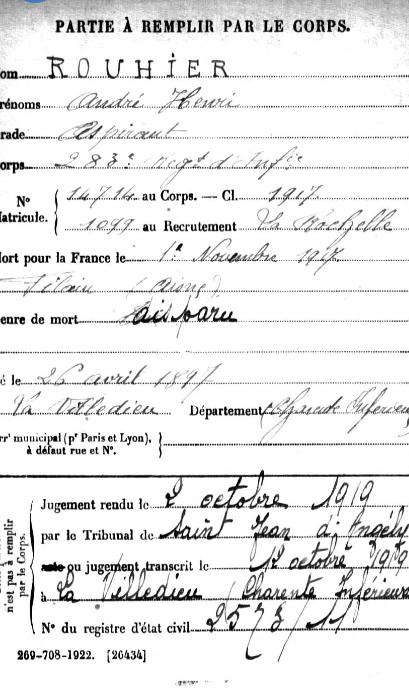 PARTIE À REMPLIR PAR LE CORPS.
om ROUHIER
rénoms André Henri
rade Aspirant
orps 283e Regt d'Infie
N° 14714 au Corps. — Cl. 1917
atricule. 1099 au Recrutement La Rochelle
ort pour la France le 1er Novembre 1917
(Aisne)
enre de mort Disparu
é le 26 avril 1897
La Villedieu Département Charente Inférieure
rrt municipal (pr Paris et Lyon),
à défaut rue et N°.
n'est pas à remplir
par le Corps.
Jugement rendu le 2 octobre 1919
par le Tribunal de Saint Jean d'Angély
acte ou jugement transcrit le octobre 1919
à La Villedieu (Charente Inférieure
N° du registre d'état civil 2573/11
269-708-1922. [26434]